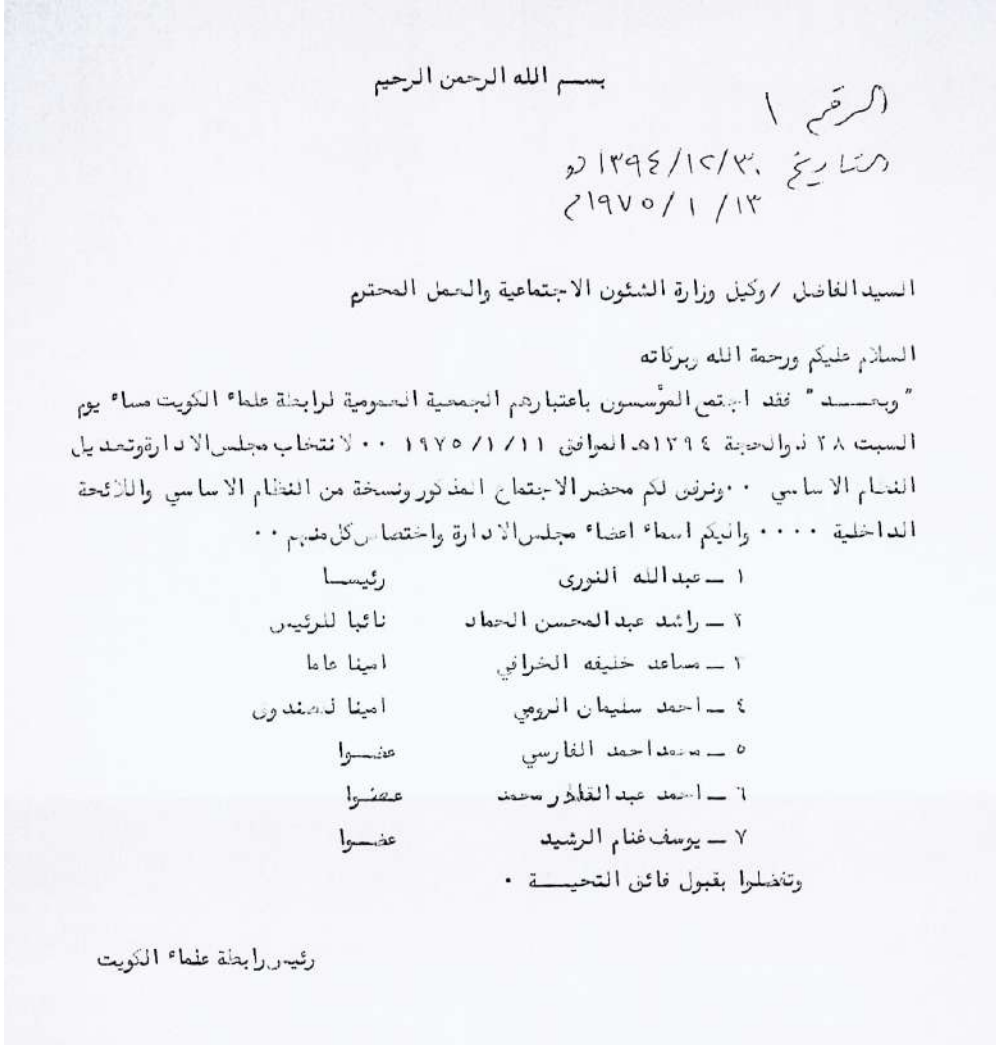 بسم الله الرحمن الرحيم
الرقم ١
التاريخ ١٣٩٤/١٢/٣٠ هـ
١٩٧٥/١/١٣م
السيد الفاضل / وكيل وزارة الشئون الاجتماعية والعمل المحترم
السلام عليكم ورحمة الله وبركاته
"وبعــد" فقد اجتمع المؤسسون باعتبارهم الجمعية العمومية لرابطة علماء الكويت مساء يوم
السبت ٢٨ ذوالحجة ١٣٩٤هـ الموافق ١٩٧٥/١/١١ ٠٠ لانتخاب مجلس الادارة وتعديل
النظام الاساسي ٠٠ ونرفق لكم محضر الاجتماع المذكور ونسخة من النظام الاساسي واللائحة
الداخلية ٠٠٠٠ واليكم اسماء اعضاء مجلس الادارة واختصاص كل منهم ٠٠
١ ــ عبدالله النورى رئيســا
٢ ــ راشد عبدالمحسن الحماد نائبا للرئيس
٣ ــ مساعد خليفه الخرافي امينا عاما
٤ ــ احمد سليمان الرومي امينا لصندوق
٥ ــ محمد احمد الفارسي عضــوا
٦ ــ احمد عبدالقادر محمد عضــوا
٧ ــ يوسف غنام الرشيد عضــوا
وتفضلوا بقبول فائق التحيــة ٠
رئيس رابطة علماء الكويت